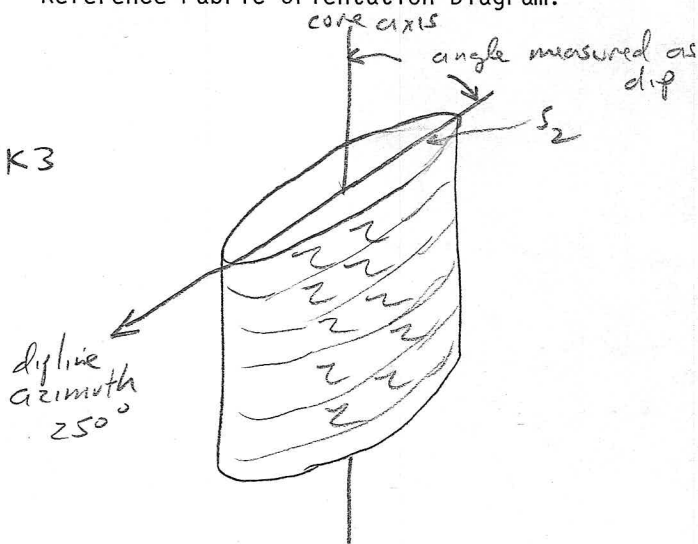 Reference Fabric Orientation Diagram:
core axis
angle measured as
dip
S2
K3
dipline
azimuth
250°